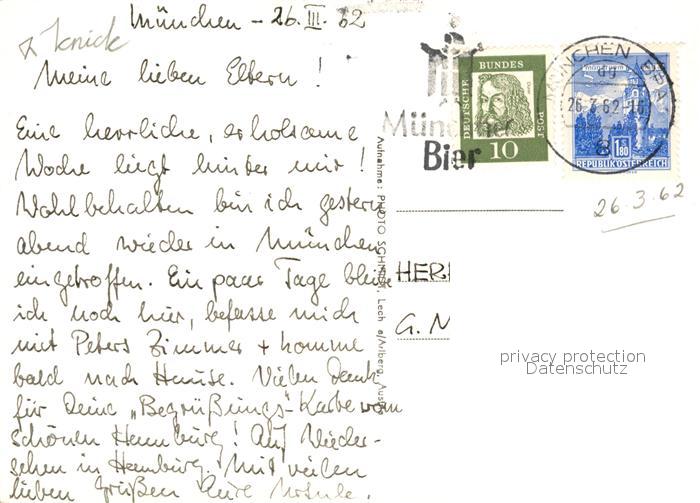 München - 26. III. 62
knick
Meine lieben Eltern!
Eine herrliche, erholsame
Woche liegt hinter mir!
Wohlbehalten bin ich gestern
abend wieder in München
eingetroffen. Ein paar Tage bleibe
ich noch hier, befasse mich
mit Peters Zimmer + komme
bald nach Hause. Vielen Dank
für Deine „Begrüßungs"-Karte vom
schönen Hamburg! Auf Wieder-
sehen in Hamburg. Mit vielen
lieben Grüßen Eure
Münchner
Bier
DEUTSCHE BUNDES POST
10
MÜNCHEN BPA
26.3.62-16
8
1.80
REPUBLIK ÖSTERREICH
26.3.62
Aufnahme: PHOTO SCHMIDT, Lech a/Arlberg, Austria
HER
G. N
privacy protection
Datenschutz